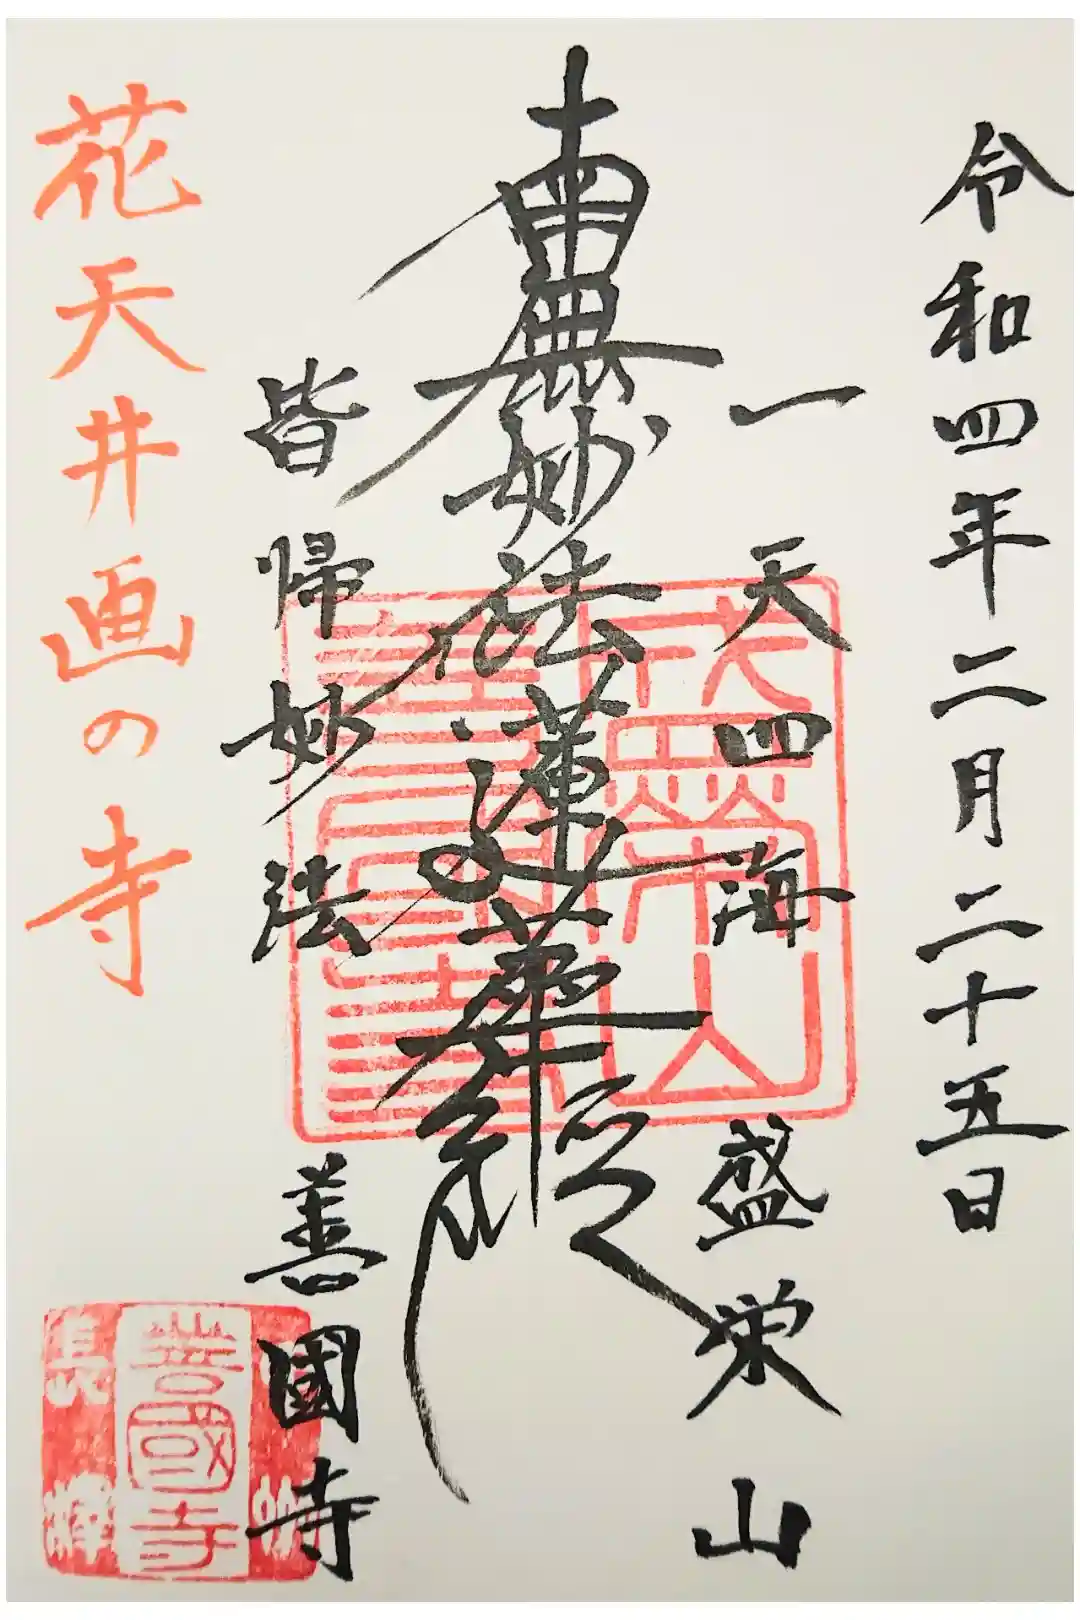 令和四年二月二十五日
一天四海
盛栄山
南無妙法蓮華経
皆帰妙法
善國寺
花天井画の寺
善國寺
長澤